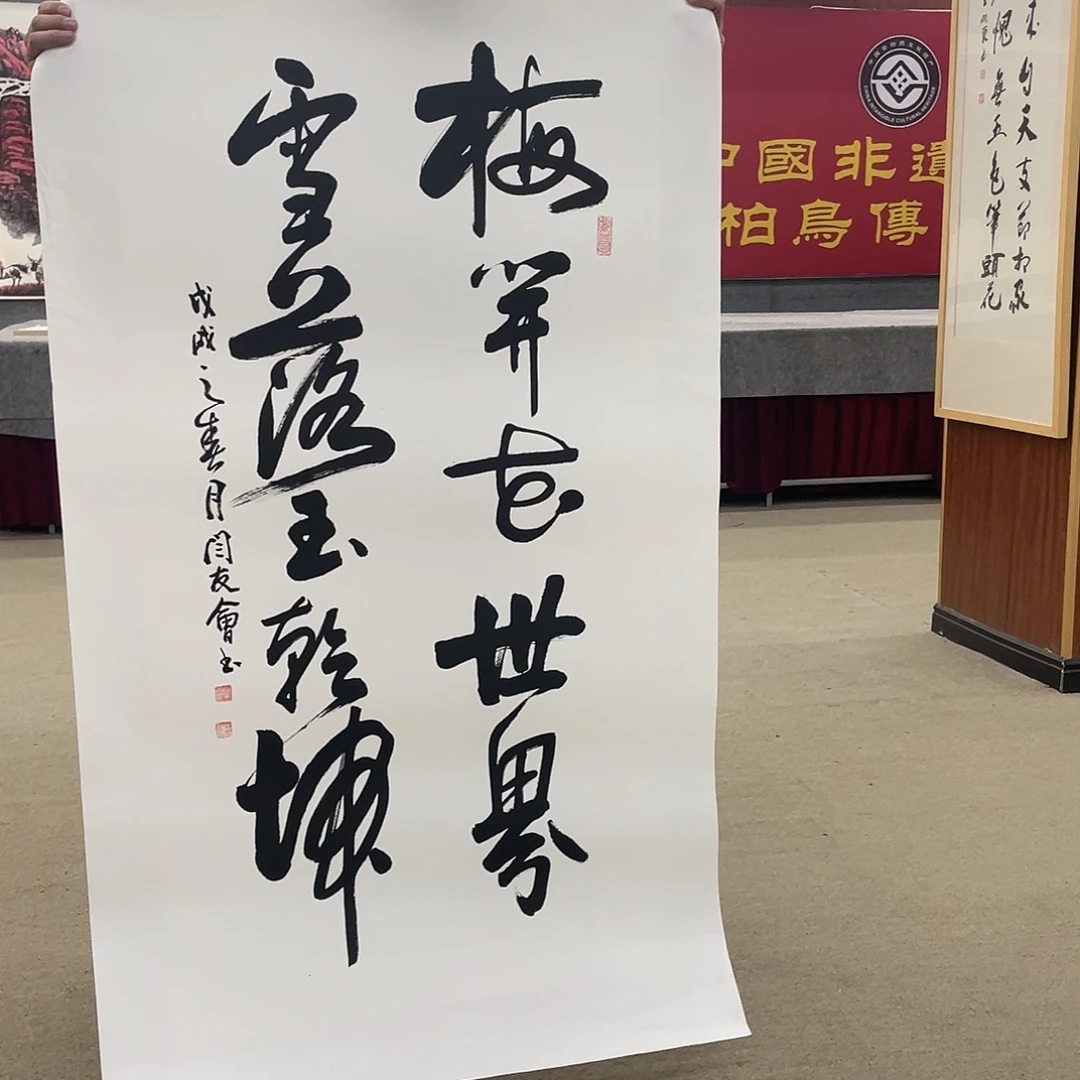 梅開花世界
雪落玉乾坤
戊戌之春月閆友會书
中國非遺
柏鳥傳
CHINA INTANGIBLE CULTURAL HERITAGE
愧無五色筆頭花